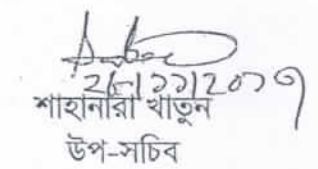 ২৬/১১/২০১৩
শাহানারা খাতুন
উপ-সচিব